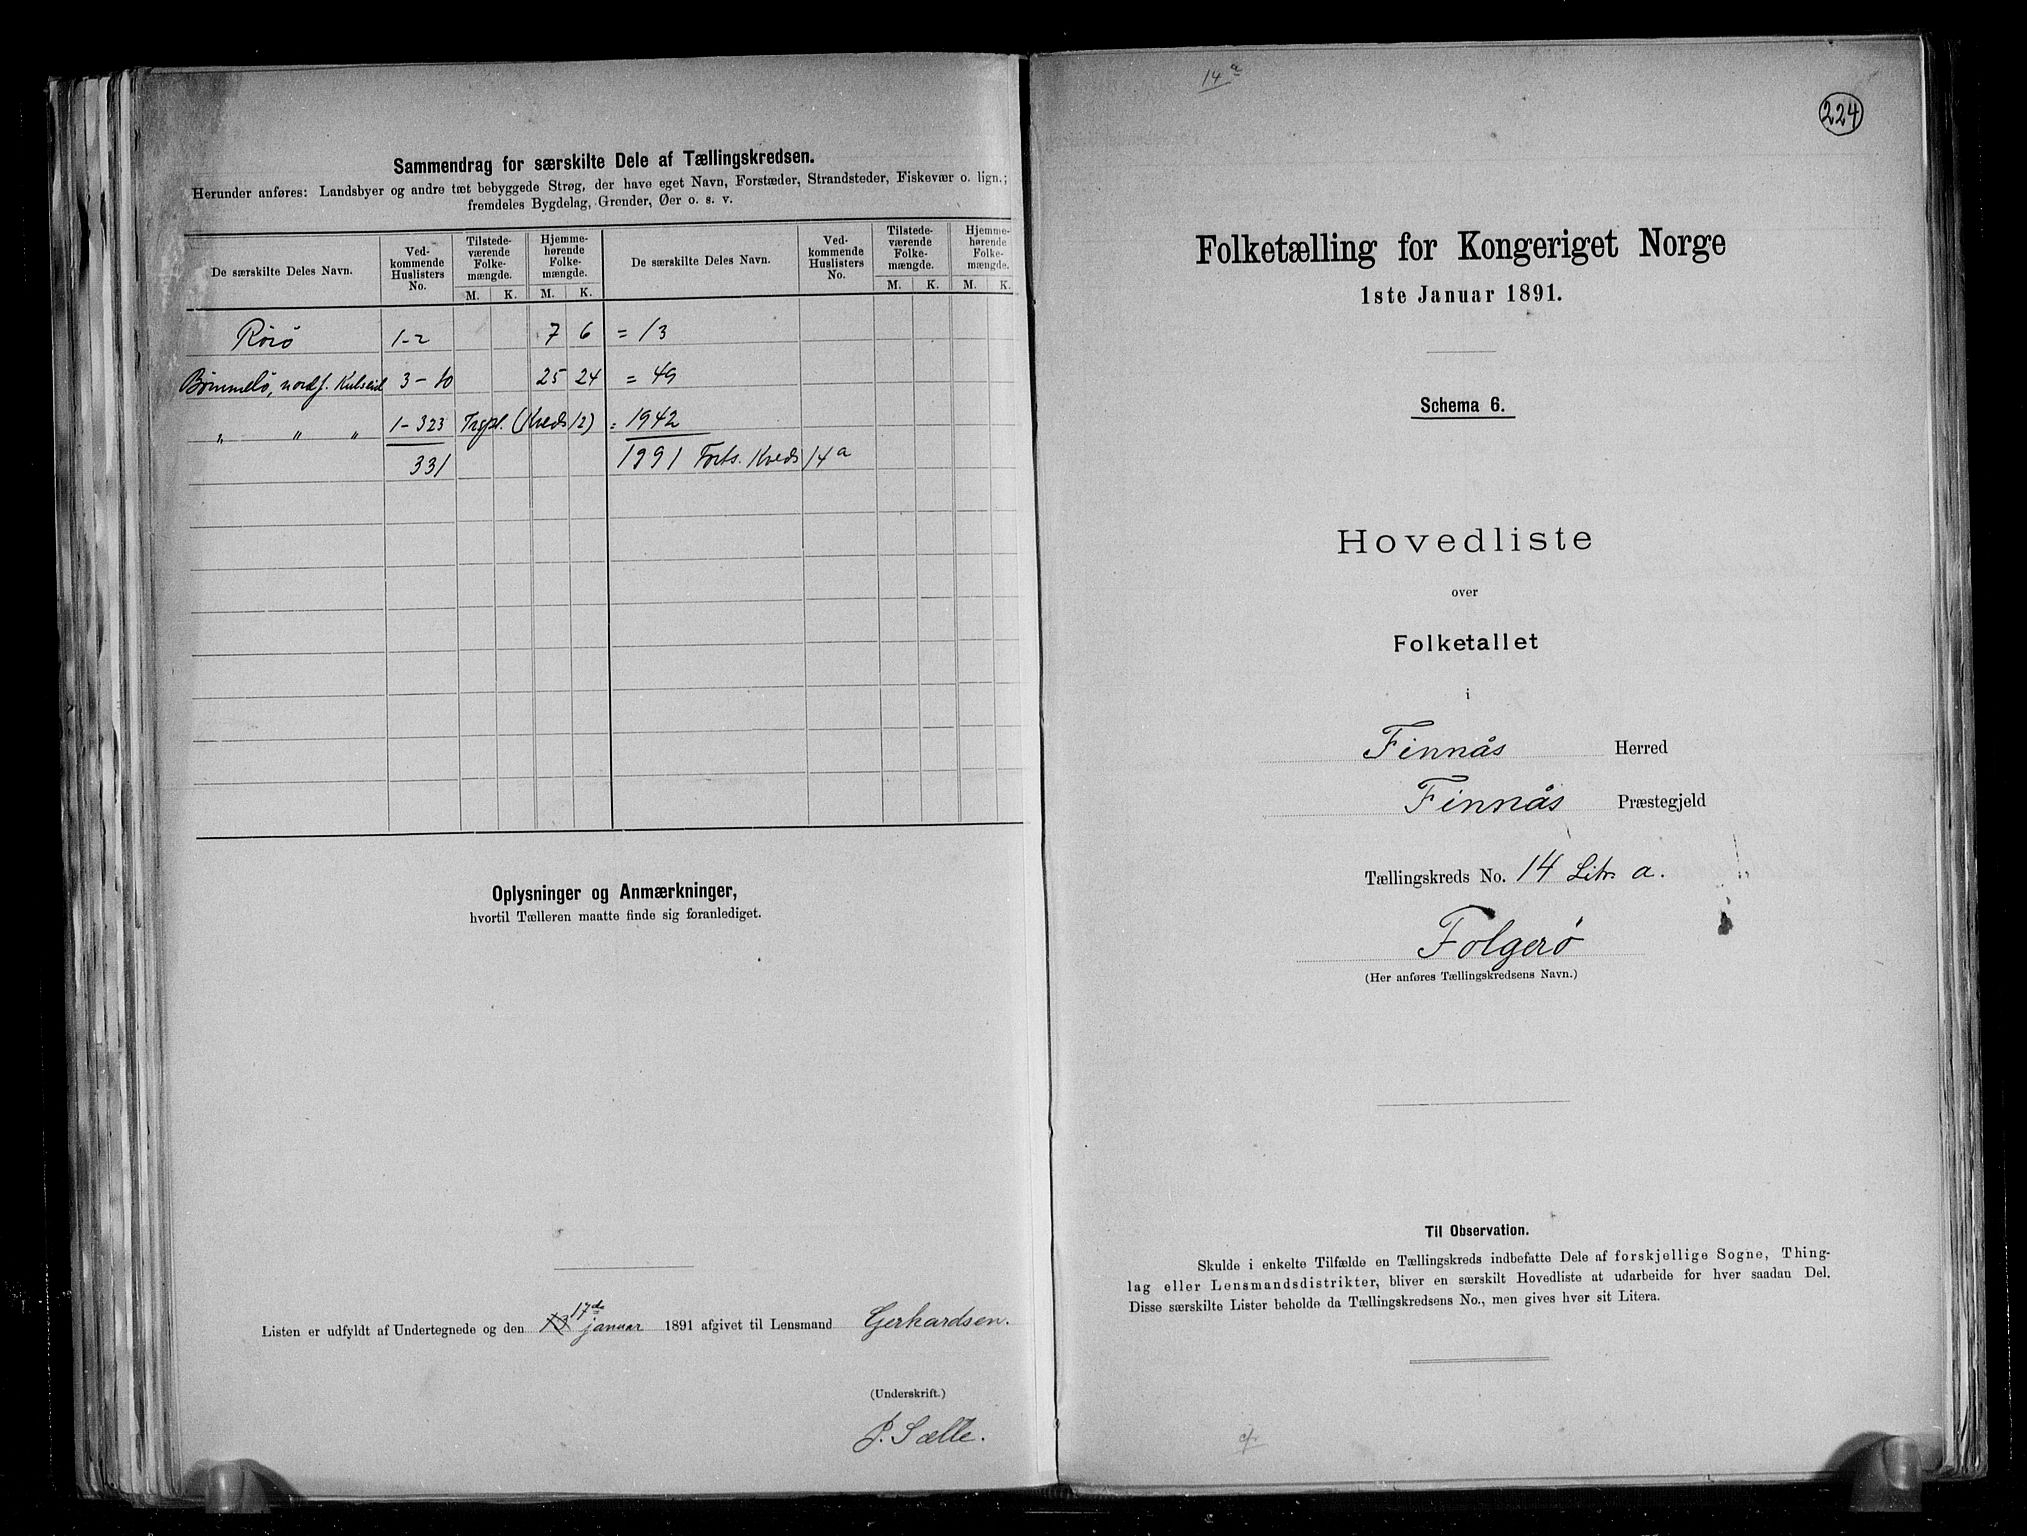 Sammendrag for særskilte Dele af Tællingskredsen.
Herunder anføres: Landsbyer og andre tæt bebyggede Strøg, der have eget Navn, Forstæder, Strandsteder, Fiskevær o. lign.;
fremdeles Bygdelag, Grender, Øer o. s. v.
De særskilte Deles Navn. Ved-kommende Huslisters No. Tilstede-værende Folke-mængde. Hjemme-hørende Folke-mængde. De særskilte Deles Navn. Ved-kommende Huslisters No. Tilstede-værende Folke-mængde. Hjemme-hørende Folke-mængde.
M. K. M. K. M. K. M. K.
Rörö 1-2 7 6 = 13
Bømmelø, nordf. Kulseid 3-10 25 24 = 49
" " " 1-323 Trspt. (Kreds 12) = 1942
331 1991 Forts. Kreds 14 a
Oplysninger og Anmærkninger,
hvortil Tælleren maatte finde sig foranlediget.
Listen er udfyldt af Undertegnede og den 17de januar 1891 afgivet til Lensmand Gerhardsen.
(Underskrift.)
P. Sælle.
14 a
224
Folketælling for Kongeriget Norge
1ste Januar 1891.
Schema 6.
Hovedliste
over
Folketallet
i
Finnås Herred
Finnås Præstegjeld
Tællingskreds No. 14 Litr a.
Folgerö
(Her anføres Tællingskredsens Navn.)
Til Observation.
Skulde i enkelte Tilfælde en Tællingskreds indbefatte Dele af forskjellige Sogne, Thing-
lag eller Lensmandsdistrikter, bliver en særskilt Hovedliste at udarbeide for hver saadan Del.
Disse særskilte Lister beholde da Tællingskredsens No., men gives hver sit Litera.